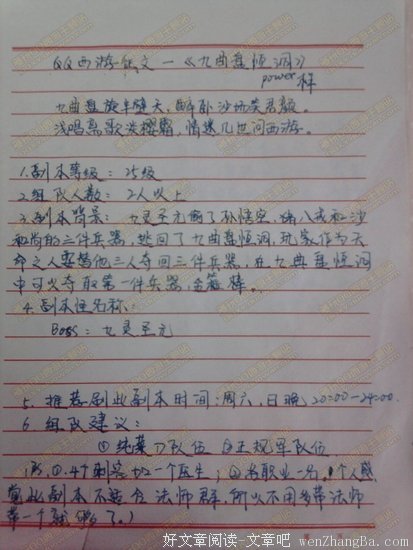 QQ西游征文一《九曲盘恒洞》
power 样
九曲盘旋半壁天，醉卧沙场笑君颜。
浅唱离歌淡樱霜，情迷几世问西游。
1.副本等级：25级
2.组队人数：2人以上
3.副本背景：九灵圣元偷了孙悟空，猪八戒和沙
和尚的三件兵器，逃回了九曲盘恒洞，玩家作为天
命之人要替他三人夺回三件兵器，在九曲盘恒洞
中可以夺取第一件兵器，金箍棒。
4.副本怪名称：
Boss：九灵圣元
5.推荐刷此副本时间：周六，日晚20:00-24:00.
6.组队建议：
①纯菜刀队伍 ②正规军队伍
①4个刺客加一个医生；②各职业一名。（个人感
觉此副本不适合法师群，所以不用多带法师
带一个就够了。）
好文章阅读-文章吧 wenZhangBa.Com